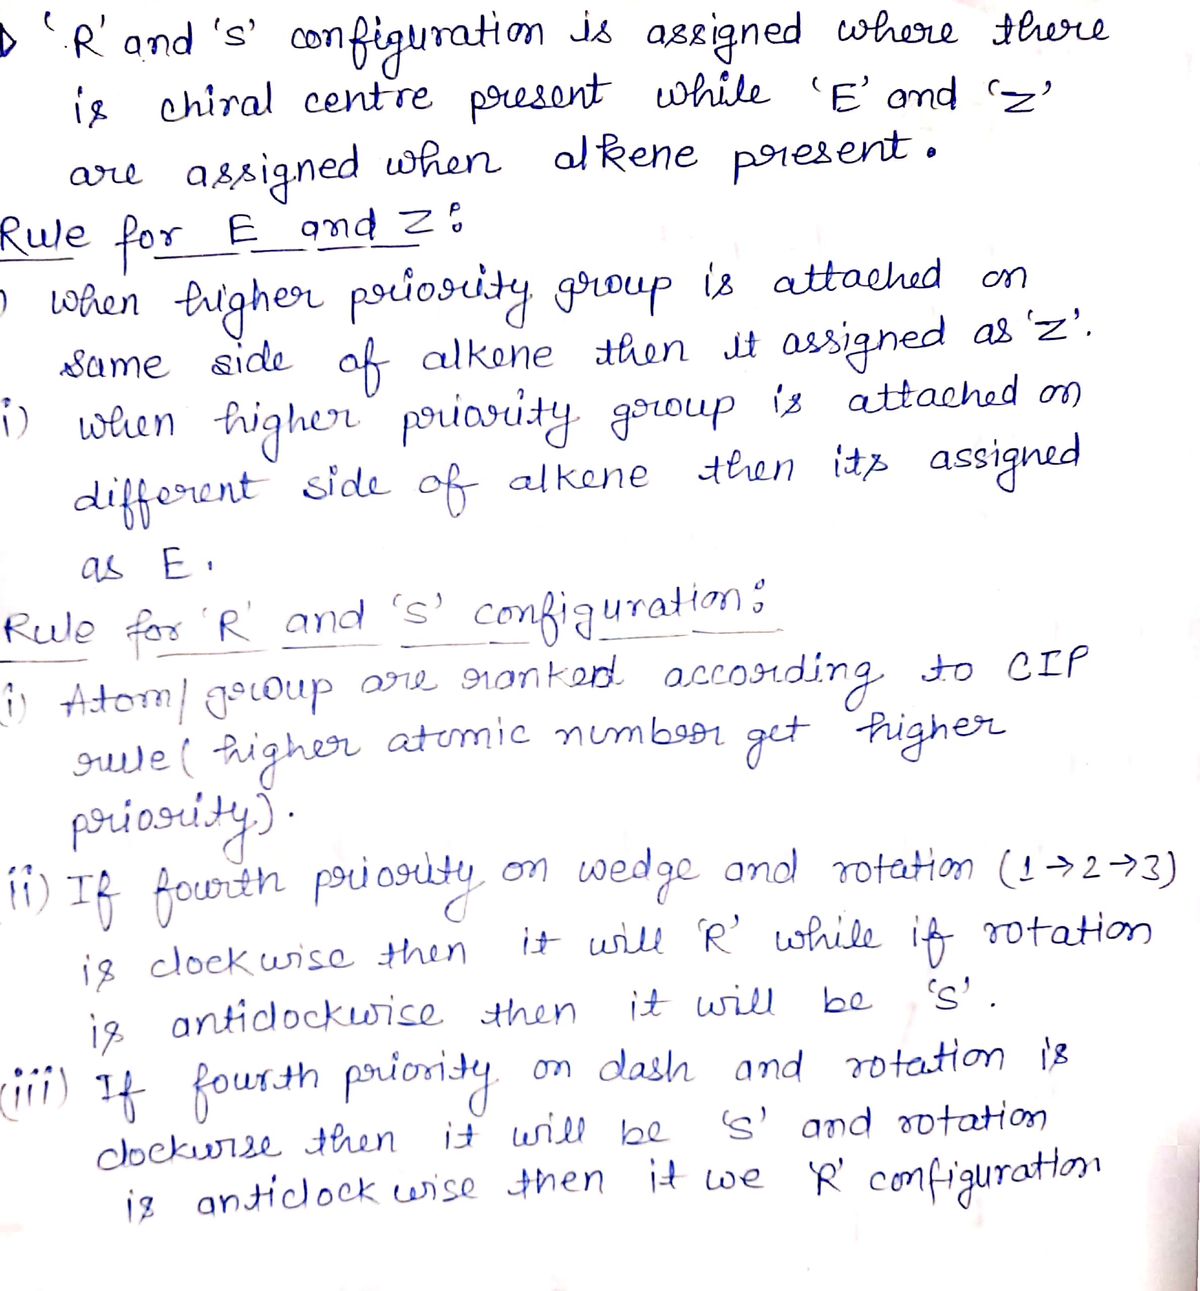 'R' and 'S' configuration is assigned where there
is chiral centre present while 'E' and 'Z'
are assigned when alkene present.
Rule for E and Z :
when higher priority group is attached on
same side of alkene then it assigned as 'Z'.
i) when higher priority group is attached on
different side of alkene then its assigned
as E.
Rule for 'R' and 'S' configuration :
i) Atom/group are ranked according to CIP
rule ( higher atomic number get higher
priority).
ii) If fourth priority on wedge and rotation (1→2→3)
is clockwise then it will 'R' while if rotation
is anticlockwise then it will be 'S'.
(iii) If fourth priority on dash and rotation is
clockwise then it will be 'S' and rotation
is anticlockwise then it we 'R' configuration